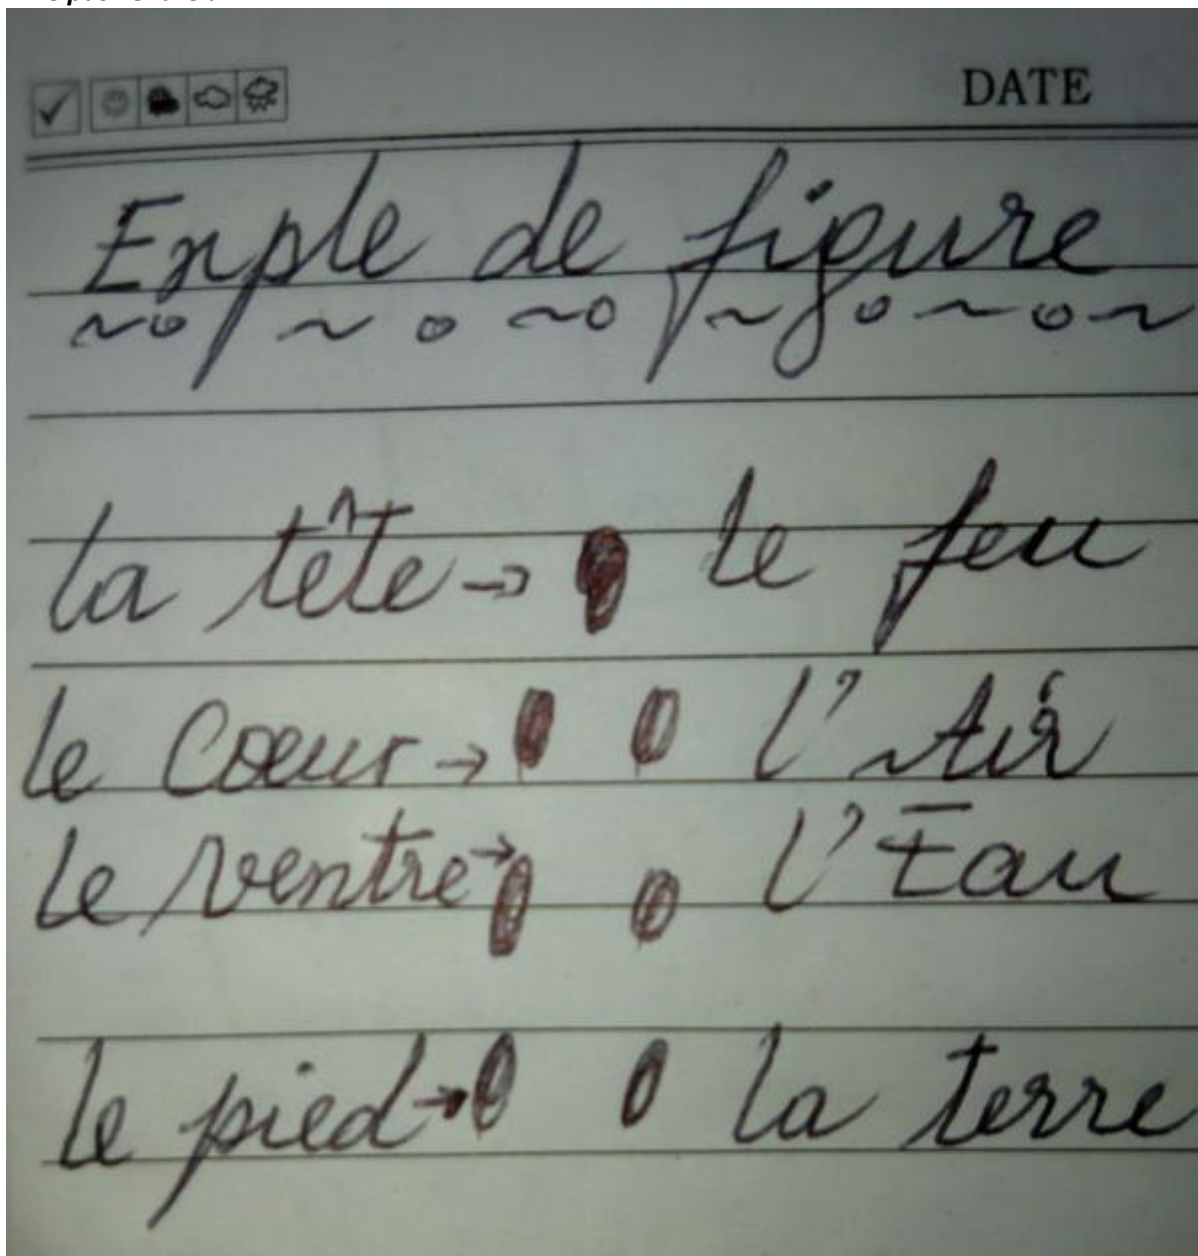 DATE
Exple de figure
la tête → le feu
le Coeur → l'Air
le ventre → l'Eau
le pied → la terre